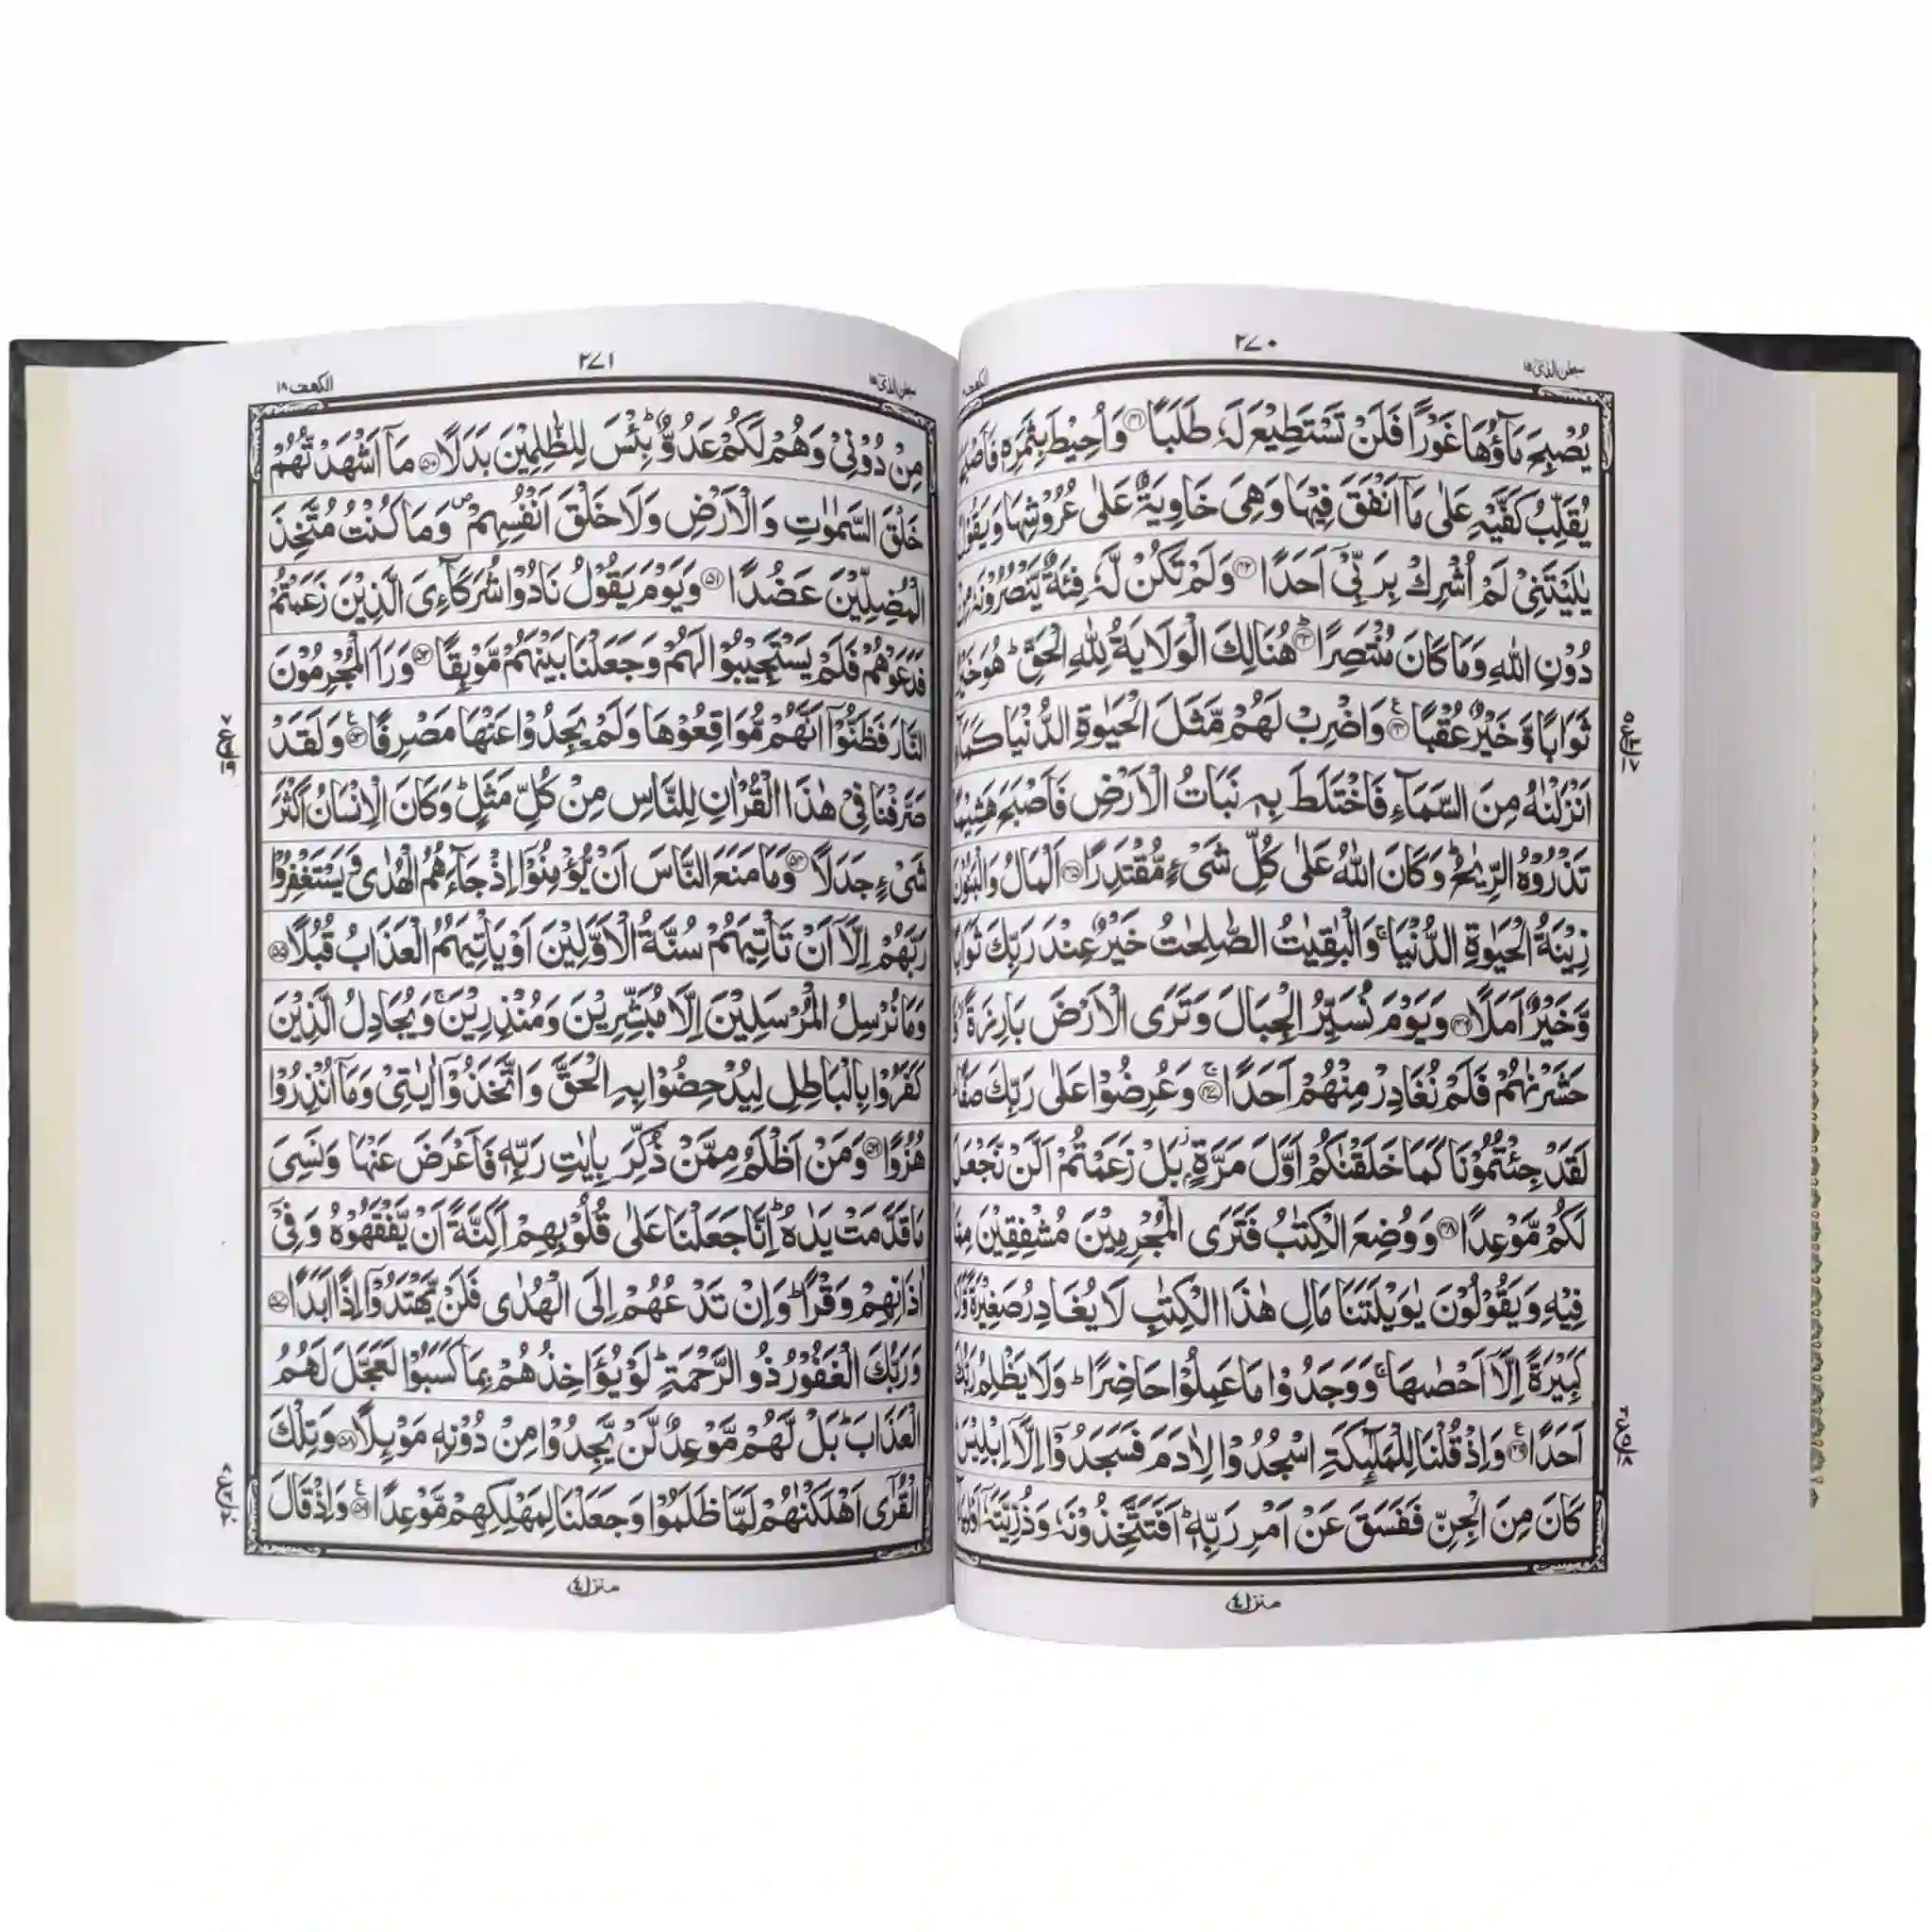 ۲۷۰
سبحن الذی ۱۵
یُصْبِحَ مَآؤُهَا غَوْرًا فَلَنْ تَسْتَطِیْعَ لَهٗ طَلَبًا ﴿۴۱﴾ وَاُحِیْطَ بِثَمَرِهٖ
یُقَلِّبُ کَفَّیْهِ عَلٰی مَآ اَنْفَقَ فِیْهَا وَهِیَ خَاوِیَةٌ عَلٰی عُرُوْشِهَا وَیَقُوْلُ
یٰلَیْتَنِیْ لَمْ اُشْرِكْ بِرَبِّیْٓ اَحَدًا ﴿۴۲﴾ وَلَمْ تَکُنْ لَّهٗ فِئَةٌ یَّنْصُرُوْنَهٗ مِنْ
دُوْنِ اللّٰهِ وَمَا کَانَ مُنْتَصِرًا ﴿۴۳﴾ؕ هُنَالِكَ الْوَلَایَةُ لِلّٰهِ الْحَقِّ ؕ هُوَ خَیْرٌ
ثَوَابًا وَّخَیْرٌ عُقْبًا ﴿۴۴﴾ وَاضْرِبْ لَهُمْ مَّثَلَ الْحَیٰوةِ الدُّنْیَا کَمَآءٍ
اَنْزَلْنٰهُ مِنَ السَّمَآءِ فَاخْتَلَطَ بِهٖ نَبَاتُ الْاَرْضِ فَاَصْبَحَ هَشِیْمًا
تَذْرُوْهُ الرِّیٰحُ ؕ وَکَانَ اللّٰهُ عَلٰی کُلِّ شَیْءٍ مُّقْتَدِرًا ﴿۴۵﴾ اَلْمَالُ وَالْبَنُوْنَ
زِیْنَةُ الْحَیٰوةِ الدُّنْیَا ۚ وَالْبٰقِیٰتُ الصّٰلِحٰتُ خَیْرٌ عِنْدَ رَبِّكَ ثَوَابًا
وَّخَیْرٌ اَمَلًا ﴿۴۶﴾ وَیَوْمَ نُسَیِّرُ الْجِبَالَ وَتَرَی الْاَرْضَ بَارِزَةً
حَشَرْنٰهُمْ فَلَمْ نُغَادِرْ مِنْهُمْ اَحَدًا ﴿۴۷﴾ۚ وَعُرِضُوْا عَلٰی رَبِّكَ صَفًّا
لَقَدْ جِئْتُمُوْنَا کَمَا خَلَقْنٰکُمْ اَوَّلَ مَرَّةٍۭ ؗ بَلْ زَعَمْتُمْ اَلَّنْ نَّجْعَلَ
لَکُمْ مَّوْعِدًا ﴿۴۸﴾ وَوُضِعَ الْکِتٰبُ فَتَرَی الْمُجْرِمِیْنَ مُشْفِقِیْنَ مِمَّا
فِیْهِ وَیَقُوْلُوْنَ یٰوَیْلَتَنَا مَالِ هٰذَا الْکِتٰبِ لَا یُغَادِرُ صَغِیْرَةً
کَبِیْرَةً اِلَّآ اَحْصٰىهَا ۚ وَوَجَدُوْا مَا عَمِلُوْا حَاضِرًا ؕ وَلَا یَظْلِمُ رَبُّكَ
اَحَدًا ﴿۴۹﴾ وَاِذْ قُلْنَا لِلْمَلٰٓئِکَةِ اسْجُدُوْا لِاٰدَمَ فَسَجَدُوْٓا اِلَّآ اِبْلِیْسَ
کَانَ مِنَ الْجِنِّ فَفَسَقَ عَنْ اَمْرِ رَبِّهٖ ؕ اَفَتَتَّخِذُوْنَهٗ وَذُرِّیَّتَهٗٓ
منزل ٤
۲۷۱
سبحن الذی ۱۵
الکهف ۱۸
مِنْ دُوْنِیْ وَهُمْ لَکُمْ عَدُوٌّ ؕ بِئْسَ لِلظّٰلِمِیْنَ بَدَلًا ﴿۵۰﴾ مَآ اَشْهَدْتُّهُمْ
خَلْقَ السَّمٰوٰتِ وَالْاَرْضِ وَلَا خَلْقَ اَنْفُسِهِمْ ۪ وَمَا کُنْتُ مُتَّخِذَ
الْمُضِلِّیْنَ عَضُدًا ﴿۵۱﴾ وَیَوْمَ یَقُوْلُ نَادُوْا شُرَکَآءِیَ الَّذِیْنَ زَعَمْتُمْ
فَدَعَوْهُمْ فَلَمْ یَسْتَجِیْبُوْا لَهُمْ وَجَعَلْنَا بَیْنَهُمْ مَّوْبِقًا ﴿۵۲﴾ وَرَاَ الْمُجْرِمُوْنَ
النَّارَ فَظَنُّوْٓا اَنَّهُمْ مُّوَاقِعُوْهَا وَلَمْ یَجِدُوْا عَنْهَا مَصْرِفًا ﴿۵۳﴾ وَلَقَدْ
صَرَّفْنَا فِیْ هٰذَا الْقُرْاٰنِ لِلنَّاسِ مِنْ کُلِّ مَثَلٍ ؕ وَکَانَ الْاِنْسَانُ اَکْثَرَ
شَیْءٍ جَدَلًا ﴿۵۴﴾ وَمَا مَنَعَ النَّاسَ اَنْ یُّؤْمِنُوْٓا اِذْ جَآءَهُمُ الْهُدٰی وَیَسْتَغْفِرُوْا
رَبَّهُمْ اِلَّآ اَنْ تَاْتِیَهُمْ سُنَّةُ الْاَوَّلِیْنَ اَوْ یَاْتِیَهُمُ الْعَذَابُ قُبُلًا ﴿۵۵﴾
وَمَا نُرْسِلُ الْمُرْسَلِیْنَ اِلَّا مُبَشِّرِیْنَ وَمُنْذِرِیْنَ ۚ وَیُجَادِلُ الَّذِیْنَ
کَفَرُوْا بِالْبَاطِلِ لِیُدْحِضُوْا بِهِ الْحَقَّ وَاتَّخَذُوْٓا اٰیٰتِیْ وَمَآ اُنْذِرُوْا
هُزُوًا ﴿۵۶﴾ وَمَنْ اَظْلَمُ مِمَّنْ ذُکِّرَ بِاٰیٰتِ رَبِّهٖ فَاَعْرَضَ عَنْهَا وَنَسِیَ
مَا قَدَّمَتْ یَدٰهُ ؕ اِنَّا جَعَلْنَا عَلٰی قُلُوْبِهِمْ اَکِنَّةً اَنْ یَّفْقَهُوْهُ وَفِیْٓ
اٰذَانِهِمْ وَقْرًا ؕ وَاِنْ تَدْعُهُمْ اِلَی الْهُدٰی فَلَنْ یَّهْتَدُوْٓا اِذًا اَبَدًا ﴿۵۷﴾
وَرَبُّكَ الْغَفُوْرُ ذُو الرَّحْمَةِ ؕ لَوْ یُؤَاخِذُهُمْ بِمَا کَسَبُوْا لَعَجَّلَ لَهُمُ
الْعَذَابَ ؕ بَلْ لَّهُمْ مَّوْعِدٌ لَّنْ یَّجِدُوْا مِنْ دُوْنِهٖ مَوْىِٕلًا ﴿۵۸﴾ وَتِلْكَ
الْقُرٰٓی اَهْلَکْنٰهُمْ لَمَّا ظَلَمُوْا وَجَعَلْنَا لِمَهْلِکِهِمْ مَّوْعِدًا ﴿۵۹﴾ وَاِذْ قَالَ
منزل ٤